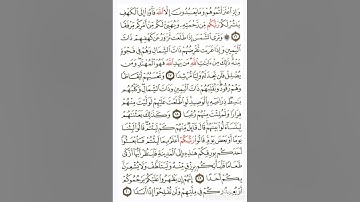 وَإِذِ ٱعْتَزَلْتُمُوهُمْ وَمَا يَعْبُدُونَ إِلَّا ٱللَّهَ فَأْوُۥٓا۟ إِلَى ٱلْكَهْفِ
يَنشُرْ لَكُمْ رَبُّكُم مِّن رَّحْمَتِهِۦ وَيُهَيِّئْ لَكُم مِّنْ أَمْرِكُم مِّرْفَقًا
١٦ ۞ وَتَرَى ٱلشَّمْسَ إِذَا طَلَعَت تَّزَٰوَرُ عَن كَهْفِهِمْ ذَاتَ
ٱلْيَمِينِ وَإِذَا غَرَبَت تَّقْرِضُهُمْ ذَاتَ ٱلشِّمَالِ وَهُمْ فِى فَجْوَةٍ
مِّنْهُ ذَٰلِكَ مِنْ ءَايَٰتِ ٱللَّهِ مَن يَهْدِ ٱللَّهُ فَهُوَ ٱلْمُهْتَدِ وَمَن
يُضْلِلْ فَلَن تَجِدَ لَهُۥ وَلِيًّا مُّرْشِدًا ١٧ وَتَحْسَبُهُمْ أَيْقَاظًا
وَهُمْ رُقُودٌ وَنُقَلِّبُهُمْ ذَاتَ ٱلْيَمِينِ وَذَاتَ ٱلشِّمَالِ وَكَلْبُهُم
بَٰسِطٌ ذِرَاعَيْهِ بِٱلْوَصِيدِ لَوِ ٱطَّلَعْتَ عَلَيْهِمْ لَوَلَّيْتَ مِنْهُمْ
فِرَارًا وَلَمُلِئْتَ مِنْهُمْ رُعْبًا ١٨ وَكَذَٰلِكَ بَعَثْنَٰهُمْ
لِيَتَسَآءَلُوا۟ بَيْنَهُمْ قَالَ قَآئِلٌ مِّنْهُمْ كَمْ لَبِثْتُمْ قَالُوا۟ لَبِثْنَا
يَوْمًا أَوْ بَعْضَ يَوْمٍ قَالُوا۟ رَبُّكُمْ أَعْلَمُ بِمَا لَبِثْتُمْ فَٱبْعَثُوٓا۟
أَحَدَكُم بِوَرِقِكُمْ هَٰذِهِۦٓ إِلَى ٱلْمَدِينَةِ فَلْيَنظُرْ أَيُّهَآ أَزْكَىٰ
طَعَامًا فَلْيَأْتِكُم بِرِزْقٍ مِّنْهُ وَلْيَتَلَطَّفْ وَلَا يُشْعِرَنَّ
بِكُمْ أَحَدًا ١٩ إِنَّهُمْ إِن يَظْهَرُوا۟ عَلَيْكُمْ يَرْجُمُوكُمْ
أَوْ يُعِيدُوكُمْ فِى مِلَّتِهِمْ وَلَن تُفْلِحُوٓا۟ إِذًا أَبَدًا ٢٠